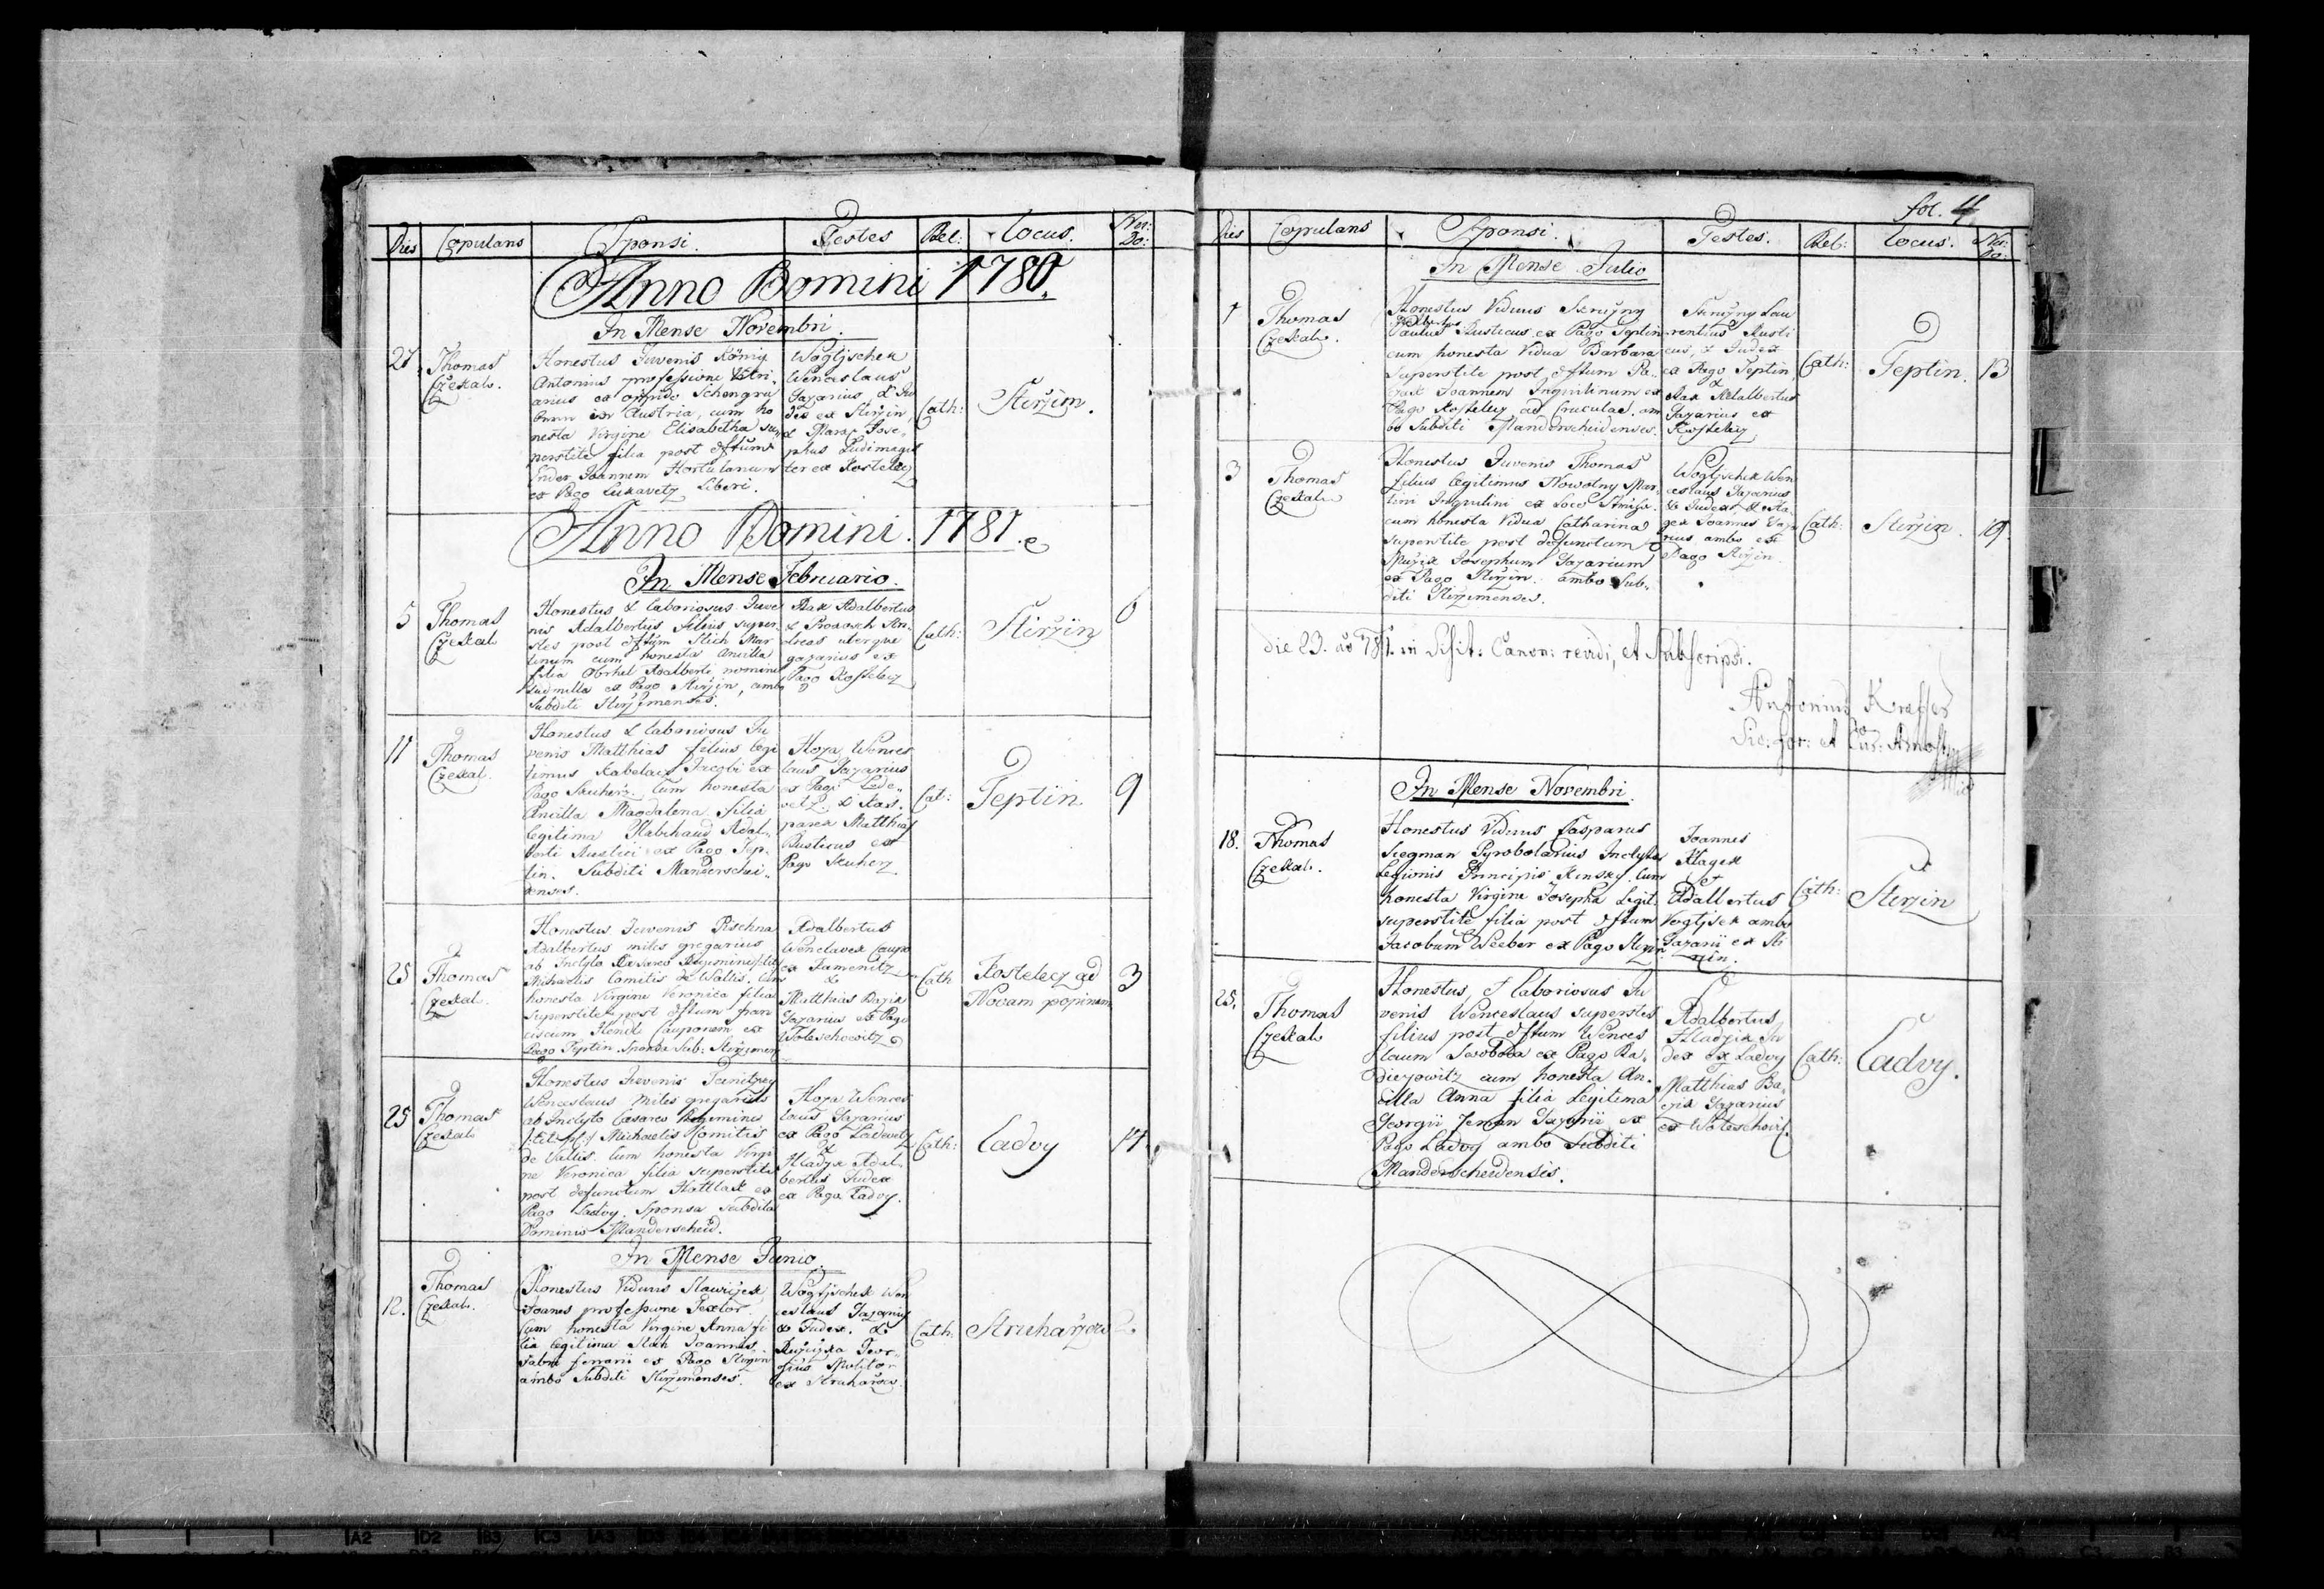 Dies Copulans Sponsi. Testes Rel: Locus. Nro: Do:
Anno Domini 1780.
In Mense Novembri.
27. Thomas Czekal.
Honestus Juvenis König
Antonius professione Vitri-
arius ex oppido Schengra
in Austria, cum ho
nesta Virgine Elisabetha su-
perstite filia post dftum
Joannem Hortulanum
ex Pago Lukavetz Liberi.
Wogtjschek
Wenceslaus
Gazarius, & Ju
dex ex Stirzin,
& Maras Jose-
phus Ludimagis
ter ex Kostelecz
Cath:
Stirzin.
Anno Domini. 1781.
In Mense Februario.
5 Thomas Czekal.
Honestus & laboriosus Juve
nis Adalbertus filius super-
stes post dftum Stich Mar
tinum cum honesta Ancilla
filia Obrhel Adalberti nomine
Ludmilla ex Pago Stirzin, ambo
Subditi Stirzimenses.
Rak Adalbertus
& Prokosch An-
dreas uterque
gazarius ex
Pago Kostelecz
Cath:
Stirzin
6
11 Thomas Czekal.
Honestus & laboriosus Ju
venis Matthias filius legi
timus Kabelacz Jacobi ex
Pago Skuherz. Cum honesta
Ancilla Magdalena filia
legitima Adal-
berti Rustici ex Pago Tep-
tin. Subditi Manderschei-
denses.
Hoza Wences
laus Gazarius
ex Pago Lede-
vetz. & Kas-
parek Matthias
Rusticus ex
Pago Skuherz
Cat:
Teptin
9
25 Thomas Czekal.
Honestus Juvenis Pischna
Adalbertus miles gregarius
ab Inclyto Caesareo Regimine
Michaelis Comitis de Wallis. Cum
honesta Virgine Veronica filia
Superstite post dftum Fran
ciscum Hendl Cauponem ex
Pago Teptin. Sponsa Sub: Stirzimen
Adalbertus
Wenclavek Caupo
ex Kamenitz
&
Matthias Bazik
Gazarius ex Pago
Woleschowitz
Cath
Kostelecz ad
Novam popinam
3
25 Thomas Czekal.
Honestus Juvenis
Wenceslaus Miles gregarius
ab Inclyto Caesareo Regimine
Michaelis Comitis
de Vallis. Cum honesta Virgi
ne Veronica filia superstite
post defunctum Kottlak ex
Pago Ladvy. Sponsa Subdita
Dominio Manderscheid.
Hoza Wences
laus Gazarius
ex Pago Ledevetz
&
Hladyk Adal-
bertus Judex
ex Pago Ladvy.
Cath:
Ladvy
14
In Mense Junio
12. Thomas Czekal.
Honestus Viduus Slawijcek
Joanes professione Textor.
Cum honesta Virgine Anna fi
lia legitima Stich Joannis
Fabri ferrarii ex Pago Stirzin
ambo Subditi Stirzimenses.
Wogtjschek Wen
ceslaus Gazarius
& Judex. &
Ruzicka Geor-
gius Molitor
ex Struharzow.
Cath:
Struharzow
2.
fol. 4
Dies Copulans Sponsi. Testes. Rel: Locus. Nro: Do:
In Mense Julio
1 Thomas Czekal.
Honestus Viduus Skružny
Adalbertus
Paulus Rusticus ex Pago Teptin
cum honesta Vidua Barbara
Superstite post dftum Pa-
Joannem Inquilinum ex
Pago Kostelecz ad Cruculae. am
bo Subditi Manderscheidenses.
Skružny Lau
rentius Rusti
cus, & Judex
ex Pago Teptin
&
Rak Adalbertus
Gazarius ex
Kostelecz
Cath:
Teptin.
13
3 Thomas Czekal.
Honestus Juvenis Thomas
filius legitimus Nowotny Mar-
tini Inquilini ex Loco
cum honesta Vidua Catharina
superstite post defunctum
Josephum Gazarium
ex Pago Stirzin. ambo Sub-
diti Stirzimenses.
Wogtjschek Wen
ceslaus Gazarius
& Judex &
Joannes Gaza
rius ambo ex
Pago Stirzin.
Cath:
Stirzin.
19.
die 23. 1781. in Visit: Canon: revidi, et Subscripsi.
Antonius
Vic: for: et
In Mense Novembri.
18. Thomas Czekal.
Honestus Viduus Casparus
Siegman Pyrobolarius Inclytae
Legionis Principis Kinsky. Cum
honesta Virgine Josepha Legit:
superstite filia post dftum
Jacobum Weeber ex Pago Stirzin
Joannes
Klagek
et
Adalbertus
Vogtjsek ambo
Gazarii ex Sti
rzin.
Cath:
Stirzin
25. Thomas Czekal
Honestus, & laboriosus Ju
venis Wenceslaus superstes
filius post dftum Wences
laum Swoboda ex Pago Ra-
diegowitz cum honesta An-
cilla Anna filia Legitima
Georgii Zeman Gazarii ex
Pago Ladvy ambo Subditi
Manderscheidensis.
Adalbertus
Hladyk Ju
dex ex Ladvy
Matthias Ba-
zik Gazarius
ex Woleschovitz
Cath:
Ladvy.